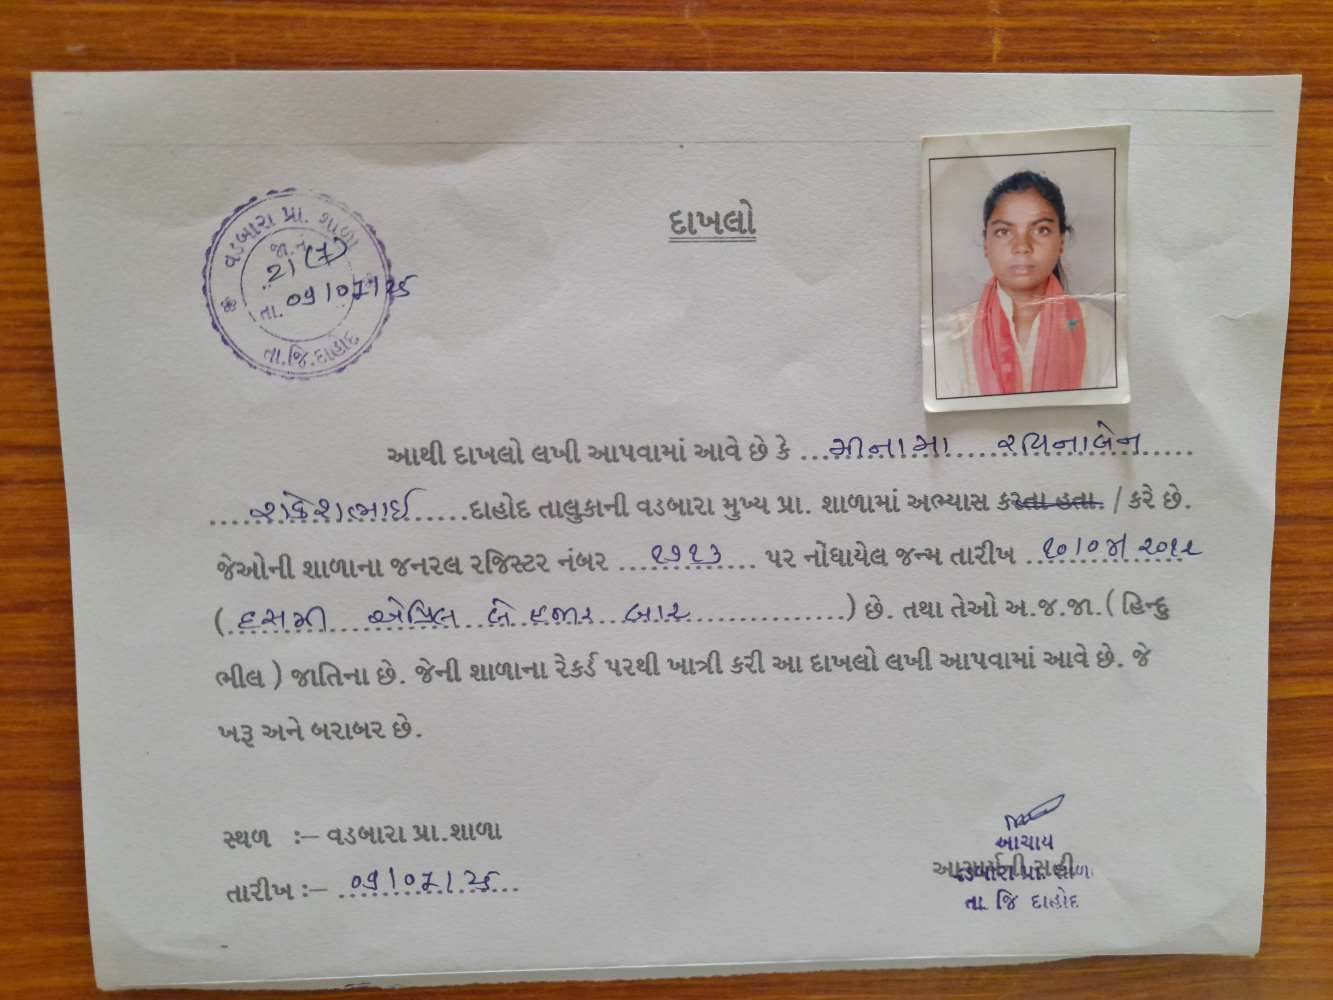 દાખલો
વડબારા પ્રા. શાળા
જા.નં.
તા. ૦૧/૦૭/૨૫
તા.જિ.દાહોદ
આથી દાખલો લખી આપવામાં આવે છે કે ...મીનામા રવિનાબેન
રાકેશભાઈ દાહોદ તાલુકાની વડબારા મુખ્ય પ્રા. શાળામાં અભ્યાસ કરતા હતા. / કરે છે.
જેઓની શાળાના જનરલ રજિસ્ટર નંબર ...૧૭૧૩... પર નોંધાયેલ જન્મ તારીખ ...૧૦/૦૪/૨૦૧૨
(દસમી એપ્રિલ બે હજાર બાર) છે. તથા તેઓ અ.જ.જા.( હિન્દુ
ભીલ ) જાતિના છે. જેની શાળાના રેકર્ડ પરથી ખાત્રી કરી આ દાખલો લખી આપવામાં આવે છે. જે
ખરૂ અને બરાબર છે.
સ્થળ :– વડબારા પ્રા.શાળા
તારીખ :– ૦૧/૦૭/૨૫
આચાર્ય
આચાર્યની સહી
વડબારા પ્રા. શાળા
તા. જિ દાહોદ